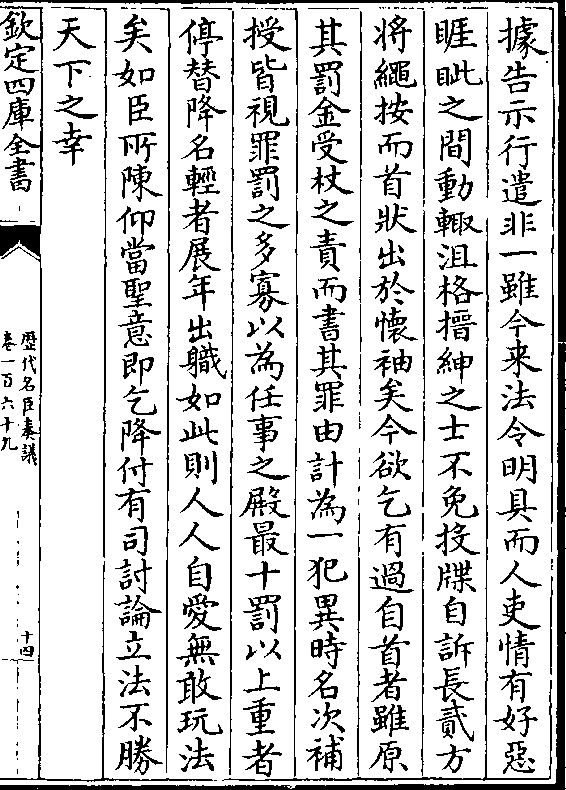 據告示行遣非一雖今来法令明具而人吏情有好惡
睚眦之間動輙沮格搢紳之士不免投牒自訴長貳方
將繩按而首狀出於懷袖矣今欲乞有過自首者雖原
其罰金受杖之責而書其罪由計為一犯異時名次補
授皆視罪罰之多寡以為任事之殿最十罰以上重者
停替降名輕者展年出職如此則人人自愛無敢玩法
矣如臣所陳仰當聖意即乞降付有司討論立法不勝
天下之幸
欽定四庫全書
歷代名臣奏議
卷一百六十九
十四